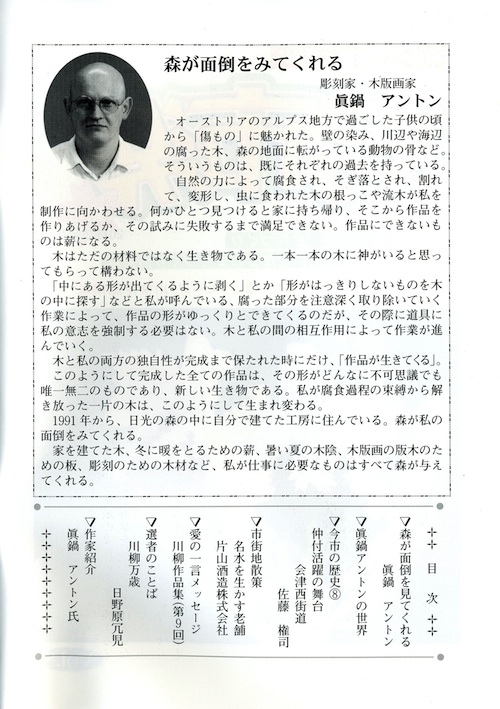 森が面倒をみてくれる
彫刻家・木版画家
眞鍋 アントン
オーストリアのアルプス地方で過ごした子供の頃
から「傷もの」に魅かれた。壁の染み、川辺や海辺
の腐った木、森の地面に転がっている動物の骨など。
そういうものは、既にそれぞれの過去を持っている。
自然の力によって腐食され、そぎ落とされ、割れ
て、変形し、虫に食われた木の根っこや流木が私を
制作に向かわせる。何かひとつ見つけると家に持ち帰り、そこから作品を
作りあげるか、その試みに失敗するまで満足できない。作品にできないも
のは薪になる。
木はただの材料ではなく生き物である。一本一本の木に神がいると思っ
てもらって構わない。
「中にある形が出てくるように剥く」とか「形がはっきりしないものを木
の中に探す」などと私が呼んでいる、腐った部分を注意深く取り除いていく
作業によって、作品の形がゆっくりとできてくるのだが、その際に道具に
私の意志を強制する必要はない。木と私の間の相互作用によって作業が進
んでいく。
木と私の両方の独自性が完成まで保たれた時にだけ、「作品が生きてくる」。
このようにして完成した全ての作品は、その形がどんなに不可思議でも
唯一無二のものであり、新しい生き物である。私が腐食過程の束縛から解
き放った一片の木は、このようにして生まれ変わる。
1991年から、日光の森の中に自分で建てた工房に住んでいる。森が私の
面倒をみてくれる。
家を建てた木、冬に暖をとるための薪、暑い夏の木陰、木版画の版木のた
めの板、彫刻のための木材など、私が仕事に必要なものはすべて森が与え
てくれる。
目 次
▽森が面倒を見てくれる
眞鍋 アントン
▽眞鍋アントンの世界
▽今市の歴史⑧
仲付活躍の舞台
会津西街道
佐藤 権司
▽市街地散策
名水を生かす老舗
片山酒造株式会社
▽愛の一言メッセージ
川柳作品集(第9回)
▽選者のことば
川柳万歳
日野原冗児
▽作家紹介
眞鍋 アントン氏